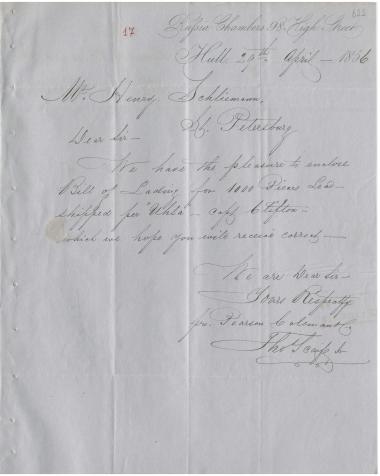 622
17
Russia Chambers 98. High Street
Hull 29th April – 1856
Mr. Henry Schliemann,
St. Petersburg
Dear Sir –
We have the pleasure to enclose
Bill of Lading for 1000 Pieces Lead
shipped per "
" – capt Clifton –
which we hope you will receive correct –
We are Dear Sir –
Yours Respectfy
pr. Pearson Coleman & Co
Thos